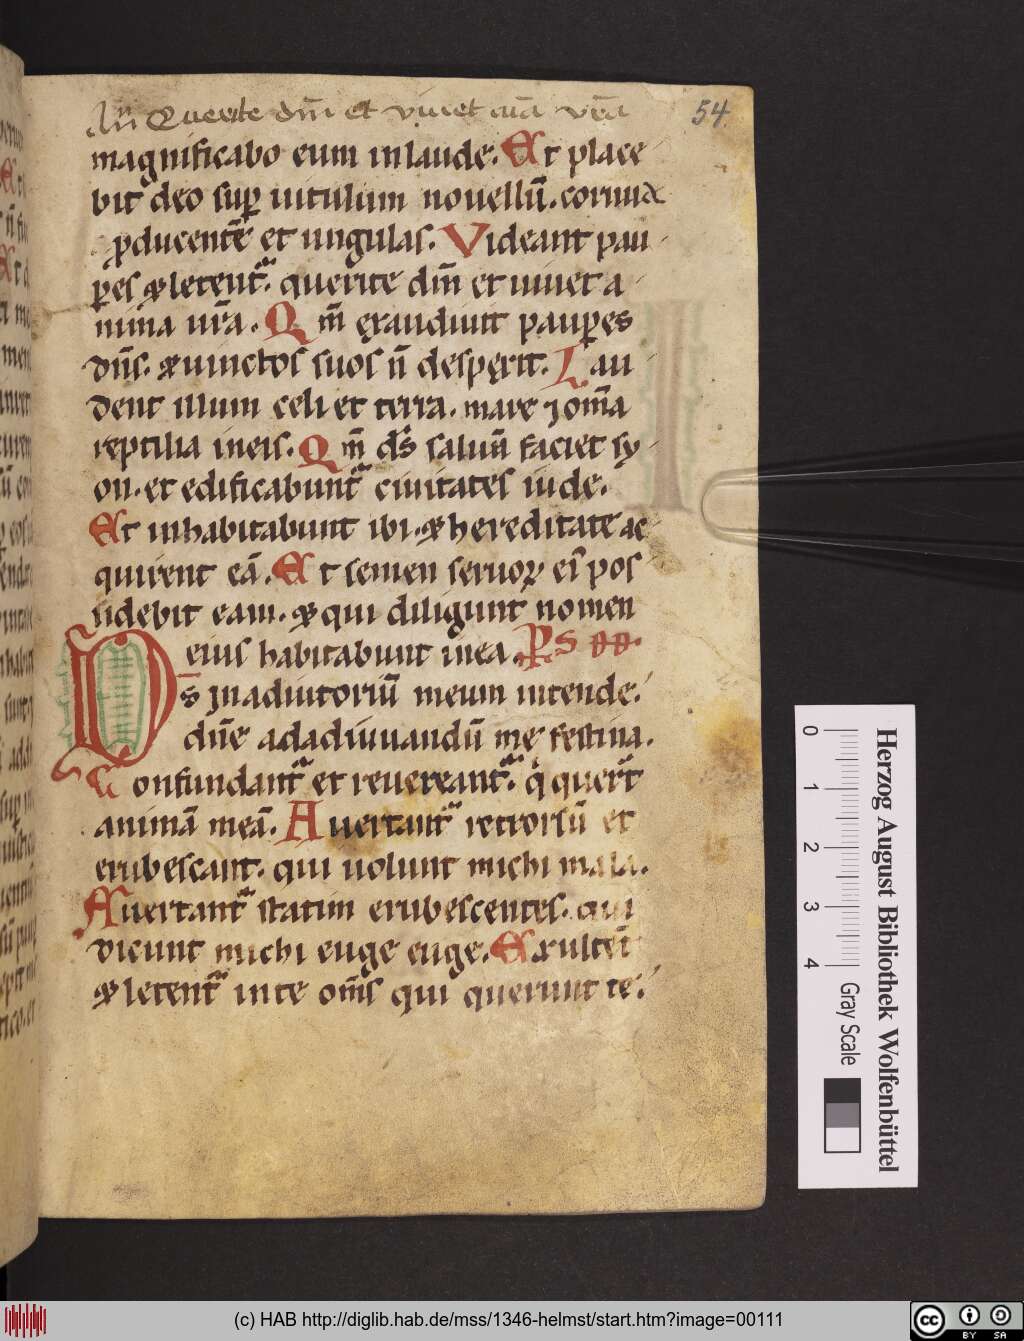 An̄ Querite dm̄ et viuet aīa vrā
54
magnificabo eum inlaude. Et place
bit deo suꝑ uitulum nouellū. cornua
ꝓducentē et ungulas. Videant pau
ꝑes ⁊ letent᷑. querite dm̄ et uiuet a
nima ur̄a. Qm̄ exaudiuit pauꝑes
dn̄s. ⁊ uinctos suos n̄ despexit. Lau
dent illum celi et terra. mare ⁊ om̄a
reptilia ineis. Qm̄ ds̄ saluā faciet sy
on. et edificabunt᷑ ciuitates iude.
Et inhabitabunt ibi. ⁊ hereditatē ac
quirent eā. Et semen seruoꝝ ei᷒ pos
sidebit eam. ⁊ qui diligunt nomen
eius habitabunt inea. Ps dd.
Ds̄ inadiutoriū meum intende.
dn̄e adadiuuandū me festina.
Confundant᷑ et reuereant᷑. qͥ quer̄t
animā meā. Auertant᷑ retrorsū et
erubescant. qui uolunt michi mala.
Auertant᷑ statim erubescentes. qui
dicunt michi euge euge. Exultēt
⁊ letent᷑ in te om̄s qui querunt te.
Herzog August Bibliothek Wolfenbüttel
0 1 2 3 4
Gray Scale
(c) HAB http://diglib.hab.de/mss/1346-helmst/start.htm?image=00111
cc BY SA